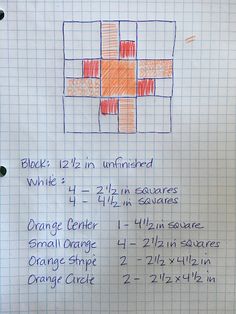 Block: 12 1/2 in unfinished
White:
4 - 2 1/2 in squares
4 - 4 1/2 in squares
Orange Center 1 - 4 1/2 in square
Small Orange 4 - 2 1/2 in squares
Orange Stripe 2 - 2 1/2 x 4 1/2 in
Orange Circle 2 - 2 1/2 x 4 1/2 in